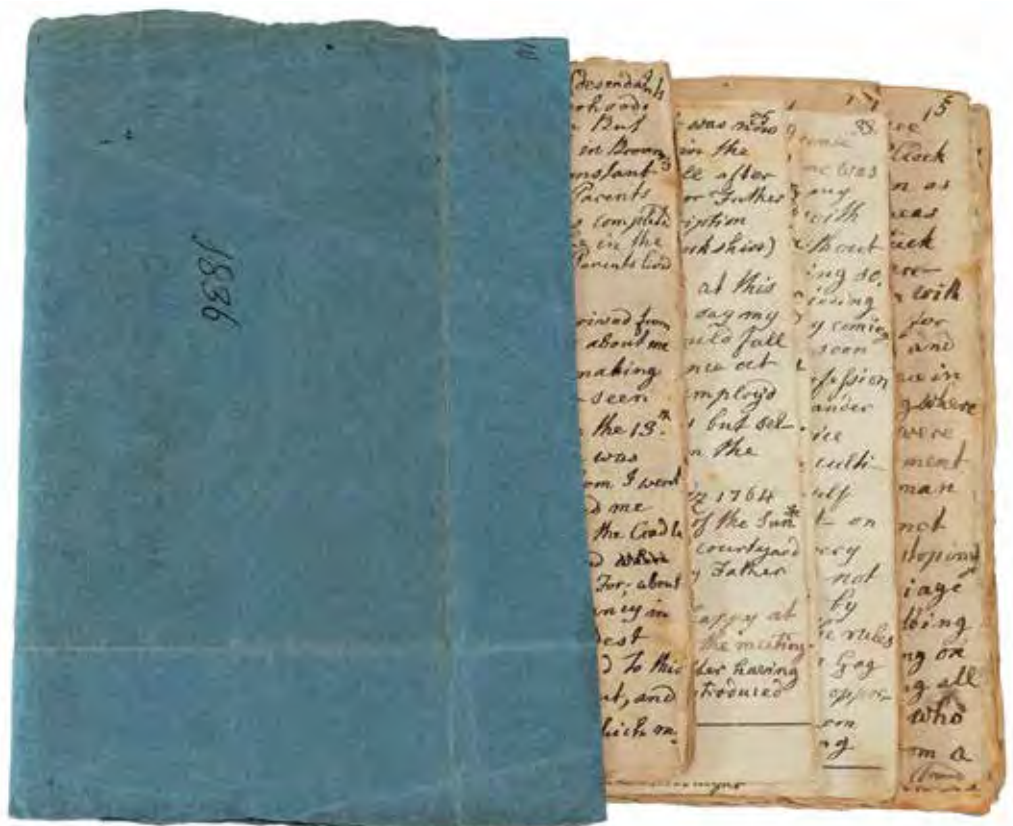 1836
descendants
But
in Brown
instant
Parents
complete
in the
Parents lived
rived from
about me
making
seen
the 13th
was
om I went
d me
the Cradle
For, about
ancy in
dest
d to this
ut, and
which m
25
was now
in the
ll after
or Father
ription
rkshire)
at this
say my
uld fall
nce act
mploy'd
but sel-
n the
1764
of the Sun*
courtyard
y Father
happy at
the meeting
fter having
troduced
33
me was
my
with
thout
ing so,
y coming
soon
ofession
under
ice
culti-
self
t on
very
not
by
he rules
Gag
oppor-
om
ng
15
Clock
n as
was
with
for
and
ce in
g where
were
ment
man
not
sloping
iage
bing
ng on
g all
who
om a